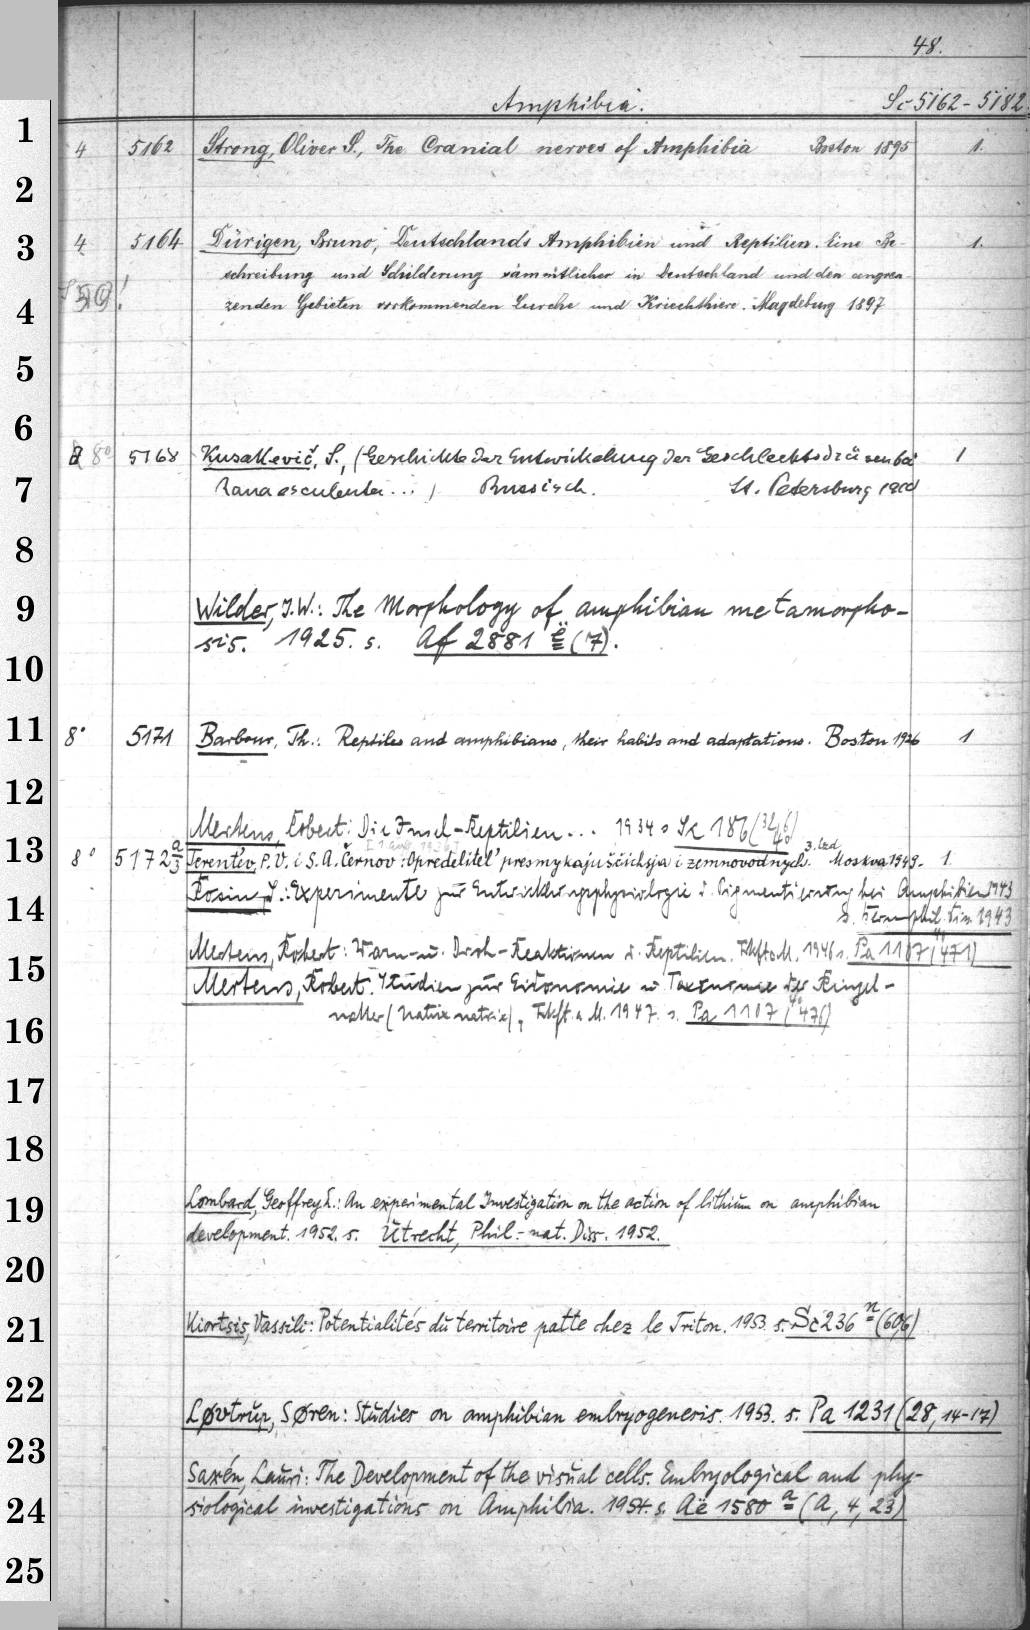 48.
Amphibia. Sc 5162-5182
1
4 5162 Strong, Oliver S., The Cranial nerves of Amphibia Boston 1895 1.
2
3
4 5164 Dürigen, Bruno, Deutschlands Amphibien und Reptilien. Eine Be-
schreibung und Schilderung sämmtlicher in Deutschland und den angren-
4
zenden Gebieten vorkommenden Lurche und Kriechthiere. Magdeburg 1897
5
6
8° 5168 Kusakevič, S., (Geschichte der Entwickelung der Geschlechtsdrüsen bei 1
7
Rana esculenta ...) Russisch. St. Petersburg 1910
8
9
Wilder, I.W.: The Morphology of amphibian metamorpho-
sis. 1925. s. Af 2881 ë (7).
10
11
8° 5171 Barbour, Th.: Reptiles and amphibians, their habits and adaptations. Boston 1926 1
12
Mertens, Robert: Die Insel-Reptilien ... 1934 s Sc 186 (32/6) 4°
13
8° 5172 a/3 Terent'ev, P.V. i S.A. Černov: Opredelitel' presmykajuščichsja i zemnovodnych. 3. izd. Moskva 1949. 1.
14
Rosin, S.: Experimente zur Entwicklungsphysiologie d. Pigmentierung bei Amphibien 1943
s. Bern phil. Diss. 1943
15
Mertens, Robert: Warn- u. Droh-Reaktionen d. Reptilien. Fkft a M. 1946 s. Pa 1107 (4° 471)
Mertens, Robert: Studien zur Eidonomie u Taxonomie der Ringel-
16
natter (Natrix natrix), Fkft. a M. 1947. s. Pa 1107 (4° 476)
17
18
19
Lombard, Geoffrey L.: An experimental Investigation on the action of lithium on amphibian
development. 1952. s. Utrecht, Phil.-nat. Diss. 1952.
20
21
Kiortsis, Vassili: Potentialités du territoire patte chez le Triton. 1953. s. Sc 236 n (606)
22
Løvtrup, Søren: Studies on amphibian embryogenesis. 1953. s. Pa 1231 (28, 14-17)
23
Saxén, Lauri: The Development of the visual cells. Embryological and phy-
24
siological investigations on Amphibia. 1954. s. Aë 1580 a (A, 4, 23)
25